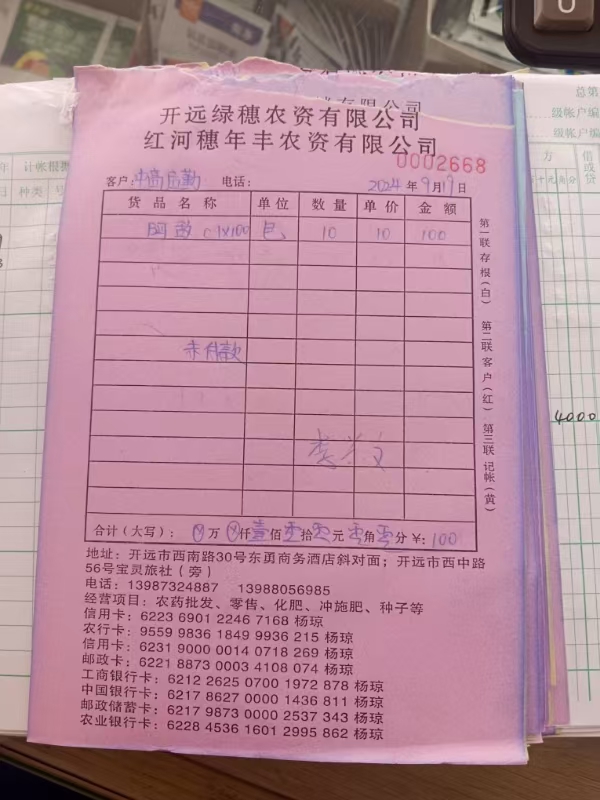 开远绿穗农资有限公司
红河穗年丰农资有限公司
0002668
客户：中高后勤 电话： 2024年9月19日
货品名称 单位 数量 单价 金额
包 10 10 100
未付款
合计（大写）：⊗万⊗仟壹佰零拾零元零角零分￥：100
地址：开远市西南路30号东勇商务酒店斜对面；开远市西中路
56号宝灵旅社（旁）
电话：13987324887 13988056985
经营项目：农药批发、零售、化肥、冲施肥、种子等
信用卡：6223 6901 2246 7168 杨琼
农行卡：9559 9836 1849 9936 215 杨琼
信用卡：6231 9000 0014 0718 269 杨琼
邮政卡：6221 8873 0003 4108 074 杨琼
工商银行卡：6212 2625 0700 1972 878 杨琼
中国银行卡：6217 8627 0000 1436 811 杨琼
邮政储蓄卡：6217 9873 0000 2537 343 杨琼
农业银行卡：6228 4536 1601 2995 862 杨琼
第一联存根（白） 第二联客户（红） 第三联记帐（黄）
有限公司
总第
级帐户编
级帐户编
计帐根据
种类 号
方
借或贷
十元角分
4000